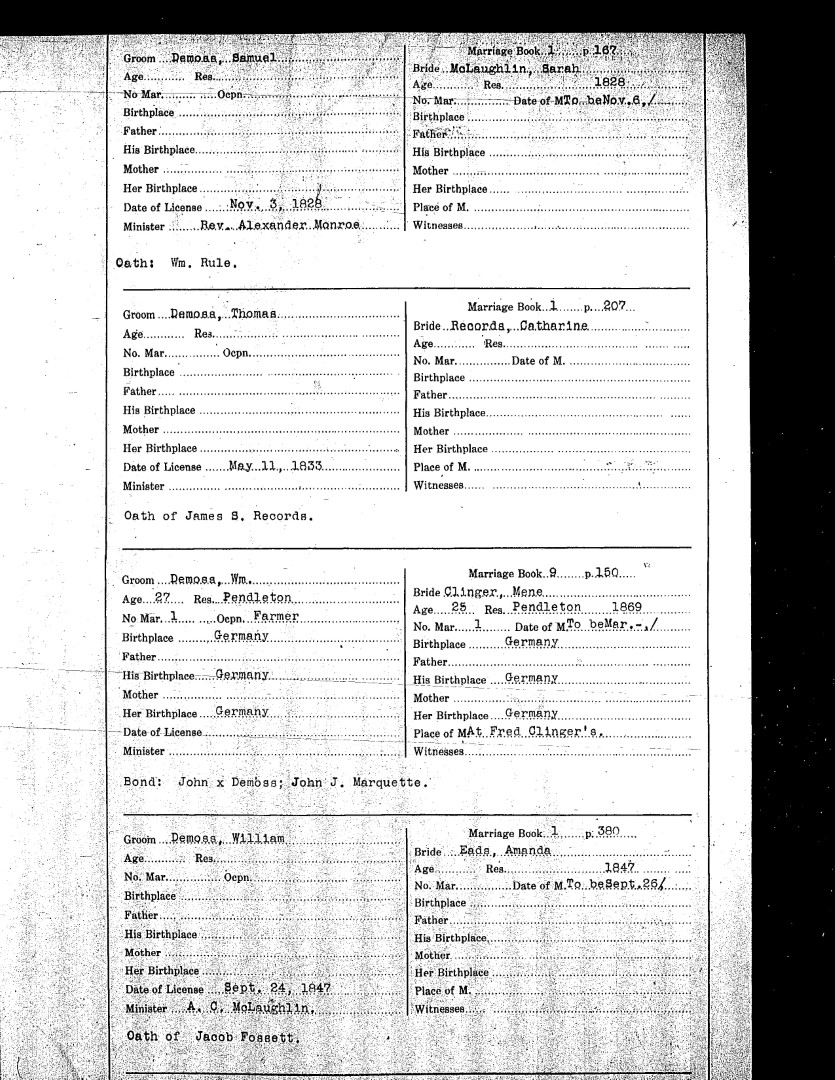 Groom Demoss, Samuel
Age Res.
No Mar. Ocpn.
Birthplace
Father
His Birthplace
Mother
Her Birthplace
Date of License Nov. 3, 1828
Minister Rev. Alexander Monroe
Marriage Book 1 p. 167
Bride McLaughlin, Sarah
Age Res. 1828
No. Mar. Date of M. To beNov.6,/
Birthplace
Father
His Birthplace
Mother
Her Birthplace
Place of M.
Witnesses
Oath: Wm. Rule.
Groom Demoss, Thomas
Age Res.
No. Mar. Ocpn.
Birthplace
Father
His Birthplace
Mother
Her Birthplace
Date of License May 11, 1833
Minister
Marriage Book 1 p. 207
Bride Records, Catharine
Age Res.
No. Mar. Date of M.
Birthplace
Father
His Birthplace
Mother
Her Birthplace
Place of M.
Witnesses
Oath of James S. Records.
Groom Demoss, Wm.
Age 27 Res. Pendleton
No Mar. 1 Ocpn. Farmer
Birthplace Germany
Father
His Birthplace Germany
Mother
Her Birthplace Germany
Date of License
Minister
Marriage Book 9 p. 150
Bride Clinger, Mene
Age 25 Res. Pendleton 1869
No. Mar. 1 Date of M. To beMar.-,/
Birthplace Germany
Father
His Birthplace Germany
Mother
Her Birthplace Germany
Place of M. At Fred Clinger's.
Witnesses
Bond: John x Demoss; John J. Marquette.
Groom Demoss, William
Age Res.
No. Mar. Ocpn.
Birthplace
Father
His Birthplace
Mother
Her Birthplace
Date of License Sept. 24, 1847
Minister A. C. McLaughlin.
Marriage Book 1 p. 380
Bride Eads, Amanda
Age Res. 1847
No. Mar. Date of M. To beSept.26/
Birthplace
Father
His Birthplace
Mother
Her Birthplace
Place of M.
Witnesses
Oath of Jacob Fossett.